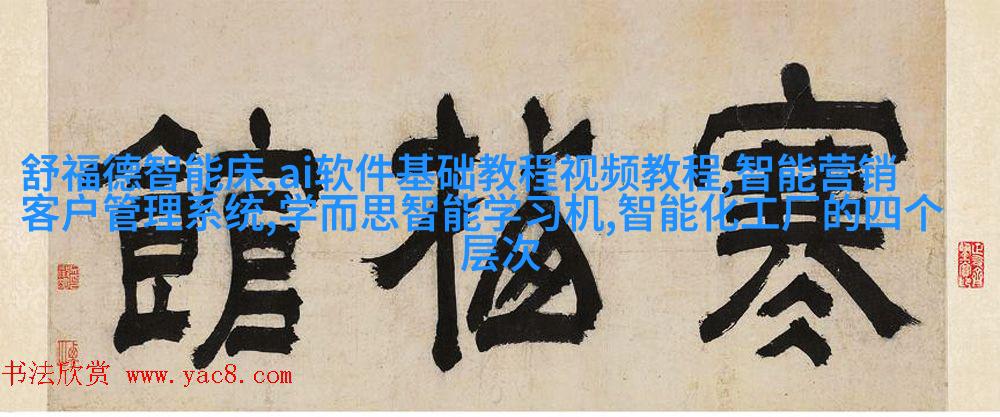 寒梅館
舒福德智能床,ai软件基础教程视频教程,智能营销
客户管理系统,学而思智能学习机,智能化工厂的四个
层次
书法欣赏 www.yac8.com